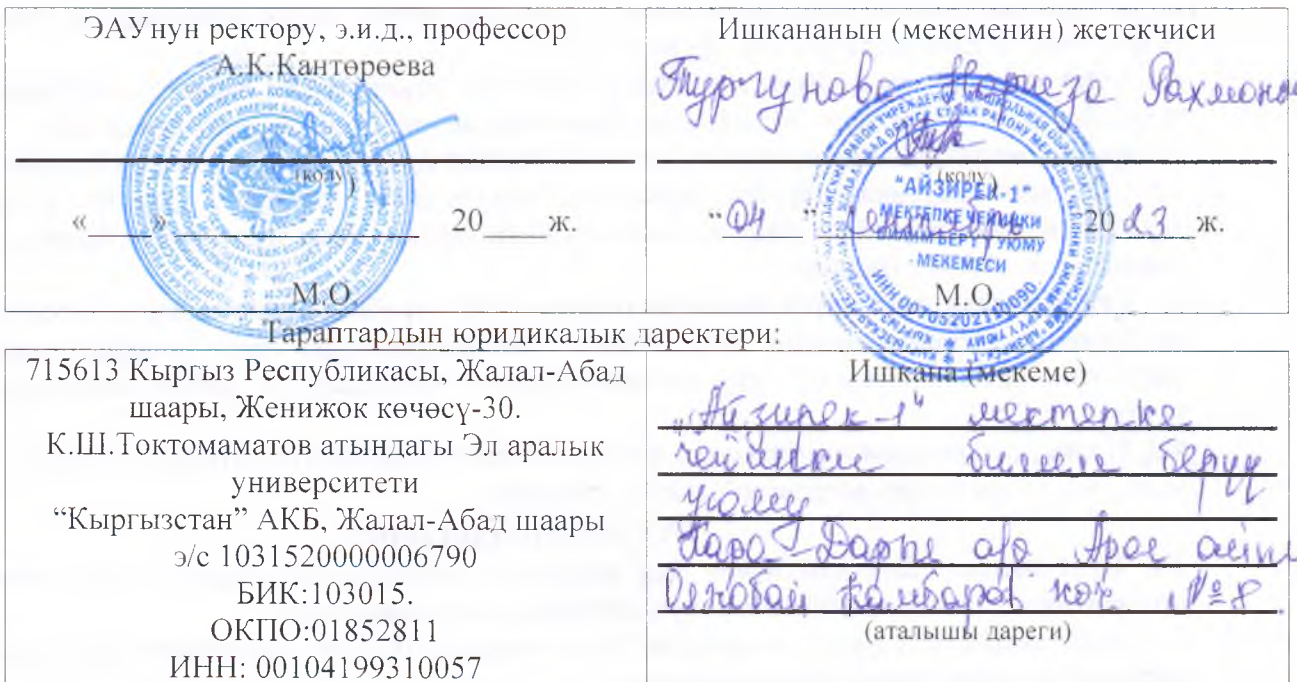 ЭАУнун ректору, э.и.д., профессор
А.К.Кантөрөева
(колу)
«____» ____________ 20____ж.
М.О.
Ишкананын (мекеменин) жетекчиси
Тургунова Наргиза Рахмонов
(колу)
"АЙЗИРЕК-1"
МЕКТЕПКЕ ЧЕЙИНКИ
БИЛИМ БЕРҮҮ УЮМУ
МЕКЕМЕСИ
ИНН 00705202110090
"04" сентябрь 2023 ж.
М.О.
Тараптардын юридикалык даректери:
715613 Кыргыз Республикасы, Жалал-Абад
шаары, Женижок көчөсү-30.
К.Ш.Токтомаматов атындагы Эл аралык
университети
“Кыргызстан” АКБ, Жалал-Абад шаары
э/с 1031520000006790
БИК:103015.
ОКПО:01852811
ИНН: 00104199310057
Ишкана (мекеме)
„Айзирек-1" мектепке
чейинки билим берүү
уюму
Кара-Дарыя а/ө Арал айыл
Камбаров көч. №8
(аталышы дареги)